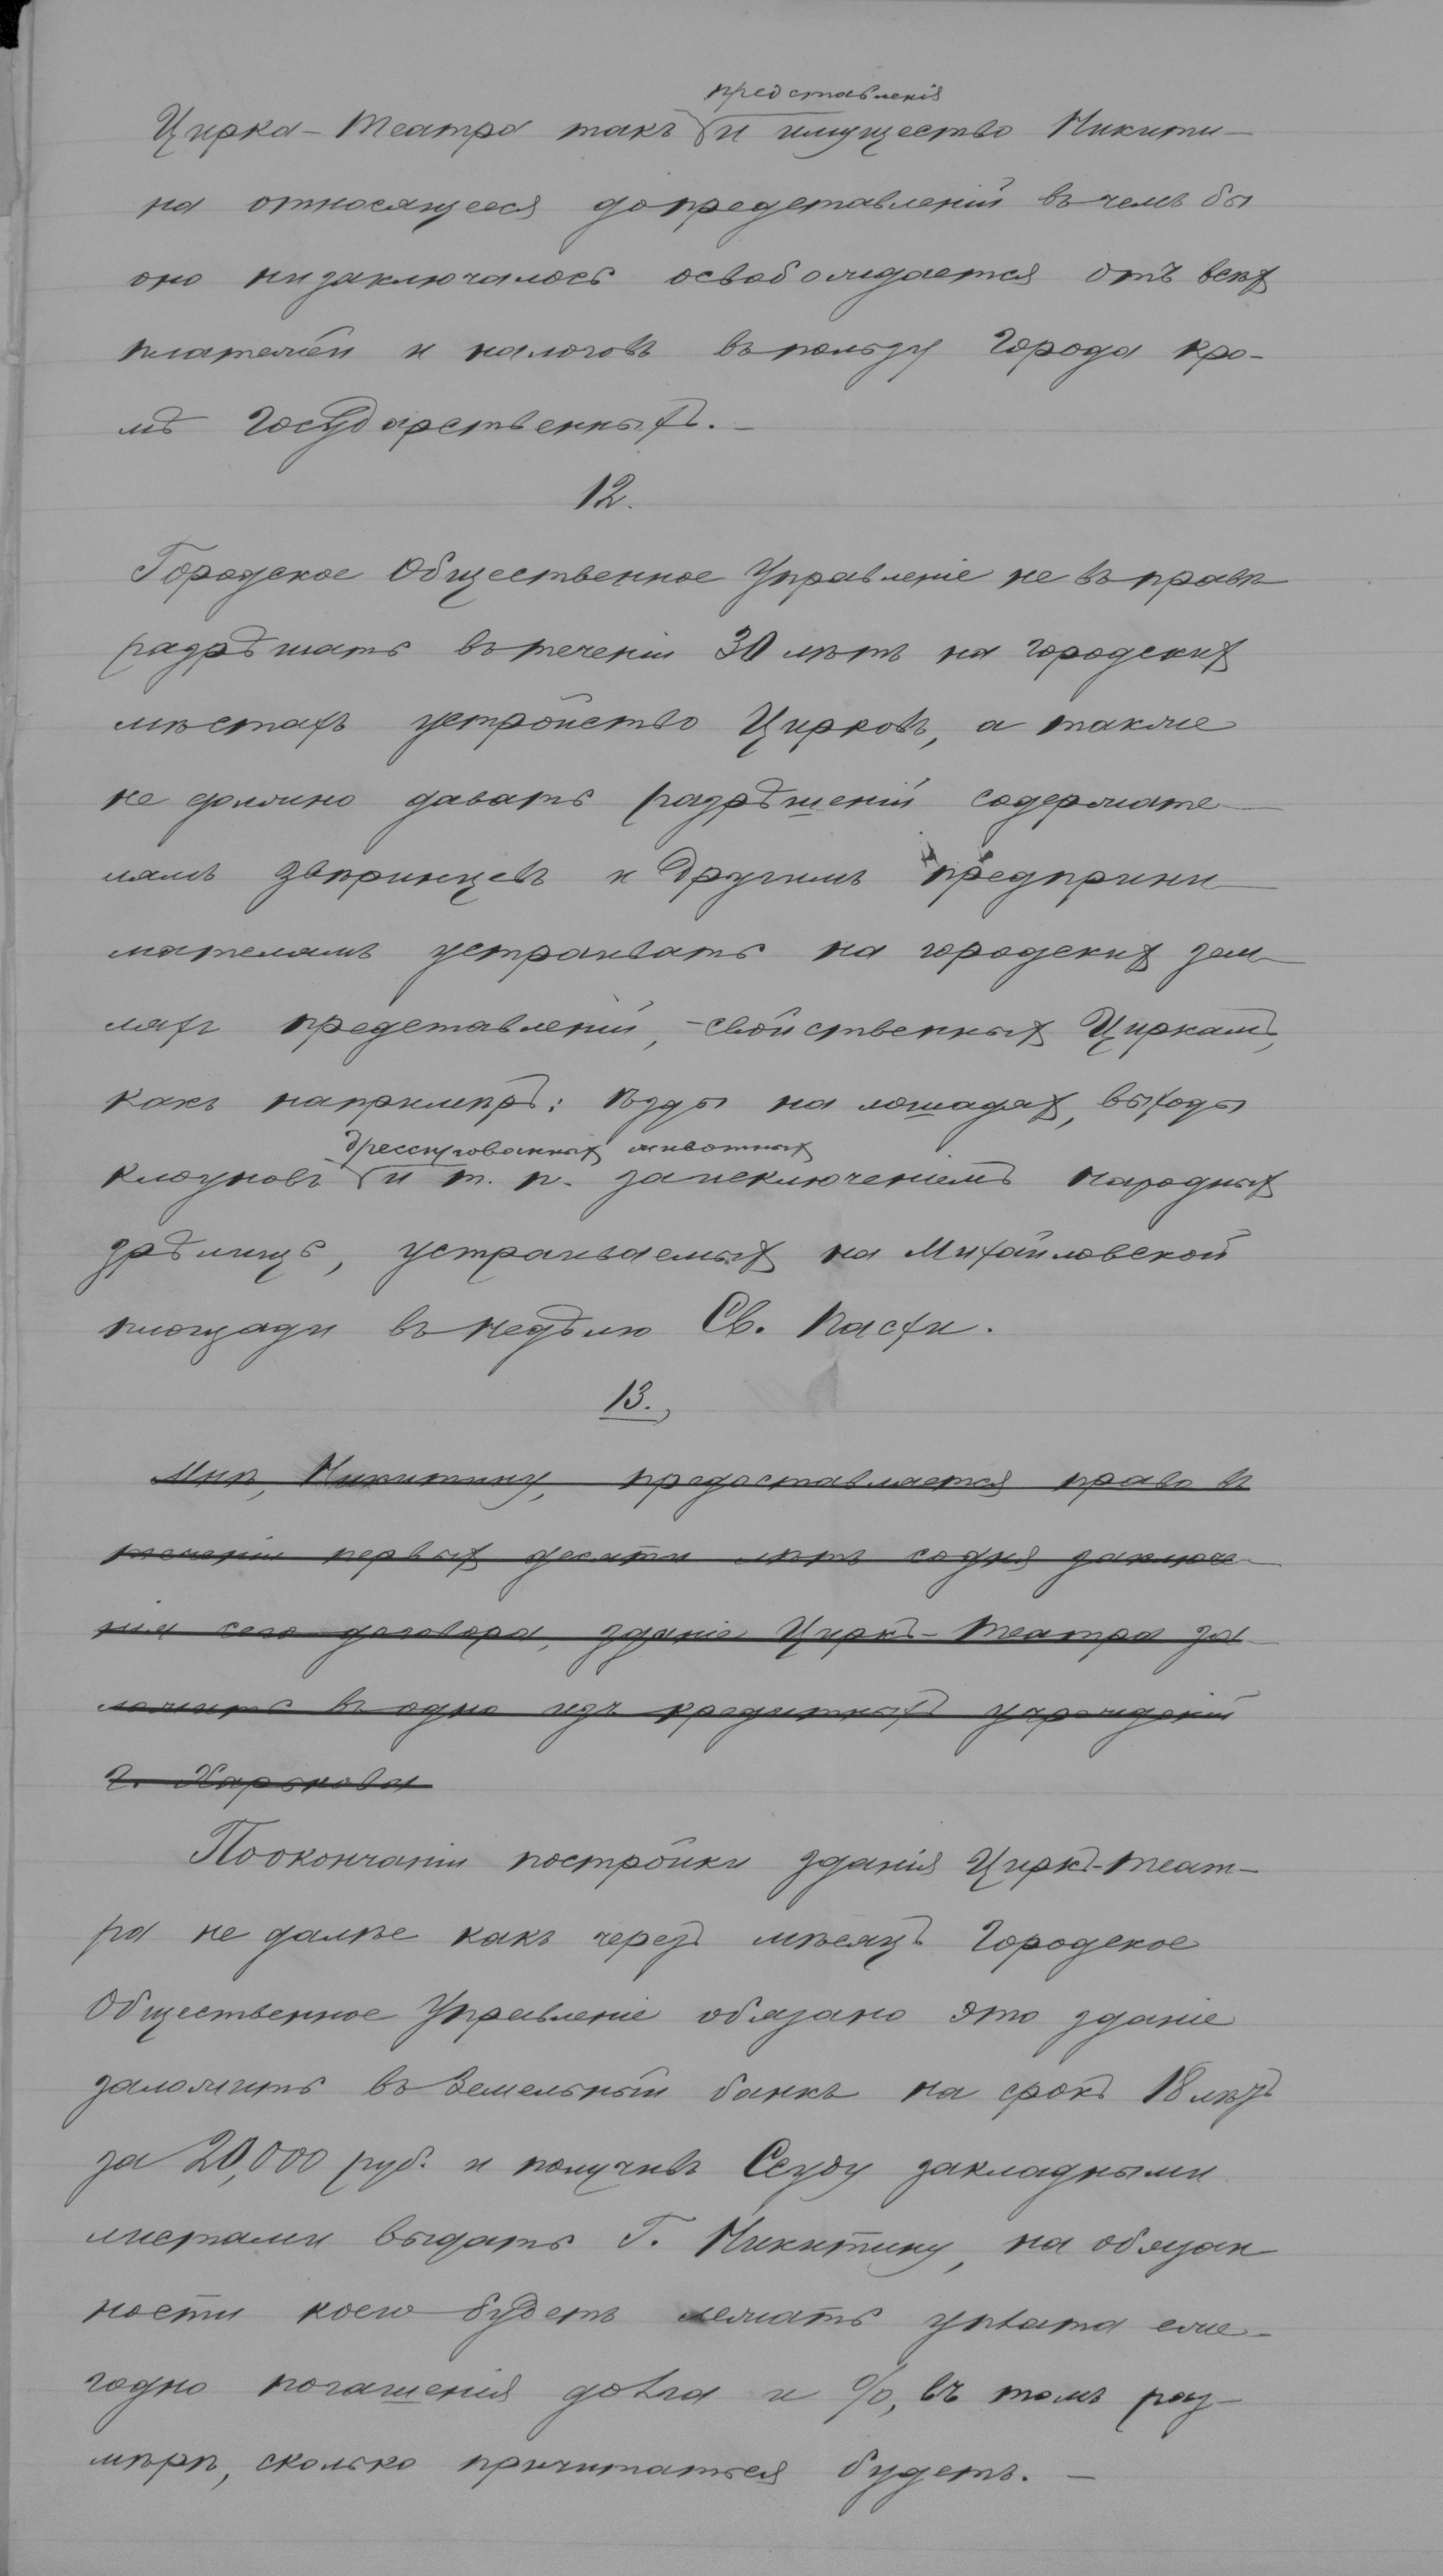 представленія
Цирка-Театра такъ и имущество Никити-
на относящееся до представленій въ чемъ бы
оно ни заключалось освобождается отъ всѣх
платежей и налоговъ въ пользу Города кро-
мѣ Государственныхъ. —
12.
Городское Общественное Управленіе не въ правѣ
разрѣшать въ теченіи 30 лѣтъ на городских
мѣстахъ устройство Цирковъ, а также
не должно давать разрѣшеній содержате-
лямъ звѣринцевъ и другимъ предприни-
мателямъ устраивать на городских зем-
ляхъ представленій, - свойственных Циркамъ,
какъ напримѣръ: ѣзды на лошадях, выходы
дрессированных животных
клоуновъ и т. п. за исключеніемъ народных
зрѣлищъ, устраиваемых на Михайловской
площади въ недѣлю Св. Пасхи.
13.,
Мнѣ, Никитину, предоставляется право въ
теченіи первых десяти лѣтъ со дня заключе-
нія сего договора, зданіе Циркъ-Театра за-
ложить въ одно изъ кредитныхъ учрежденій
г. Харькова
По окончаніи постройки зданія Циркъ-Теат-
ра не далѣе какъ черезъ мѣсяцъ Городское
Общественное Управленіе обязано это зданіе
заложить въ Земельный банкъ на срокъ 18 лѣтъ
за 20,000 руб. и получивъ Ссуду закладными
листами выдать Г. Никитину, на обязан
ности коего будетъ лежать уплата еже-
годно погашенія долга и %, въ томъ раз-
мѣрѣ, сколько причитаться будетъ. —